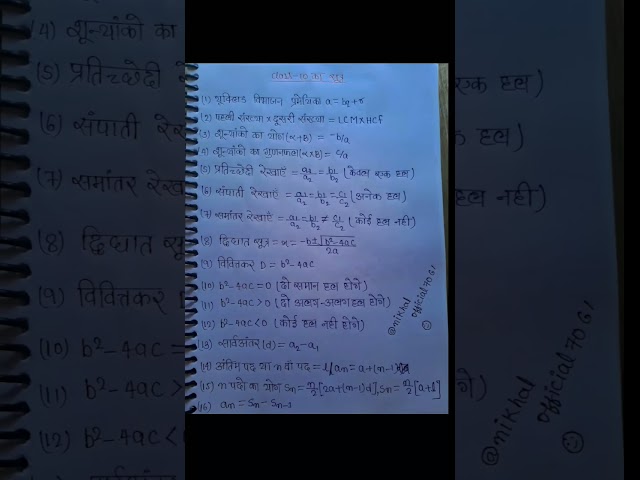 Class-10 का सूत्र
(1) यूक्लिड विभाजन प्रमेयिका a = bq + r
(2) पहली संख्या × दूसरी संख्या = LCM × HCf
(3) शून्यांको का योग (α+B) = -b/a
(4) शून्यांको का गुणनफल (α×B) = c/a
(5) प्रतिच्छेदी रेखाएँ = a1/a2 = b1/b2 (केवल एक हल)
(6) संपाती रेखाएँ = a1/a2 = b1/b2 = c1/c2 (अनेक हल)
(7) समांतर रेखाएँ = a1/a2 = b1/b2 ≠ c1/c2 (कोई हल नही)
(8) द्विघात सूत्र = x = -b±√b²-4ac/2a
(9) विवित्तकर D = b²-4ac
(10) b²-4ac = 0 (दो समान हल होंगे)
(11) b²-4ac > 0 (दो अलग-अलग हल होंगे)
(12) b²-4ac < 0 (कोई हल नही होंगे)
(13) सार्वअंतर (d) = a2 - a1
(14) अंतिम पद या n वाँ पद = l/an = a+(n-1)d
(15) n पदो का योग Sn = n/2[2a+(n-1)d], Sn = n/2[a+l]
(16) an = Sn - Sn-1
@nikhal
official 7061
(4) शून्यांको का
(5) प्रतिच्छेदी
(6) संपाती
(7) समांतर रे
(8) द्विघात सू
(9) विवित्तकर
(10) b²-4ac =
(11) b²-4ac >
(12) b²-4ac <
एक हल)
हल)
हल नही)
@nikhal
official 7061